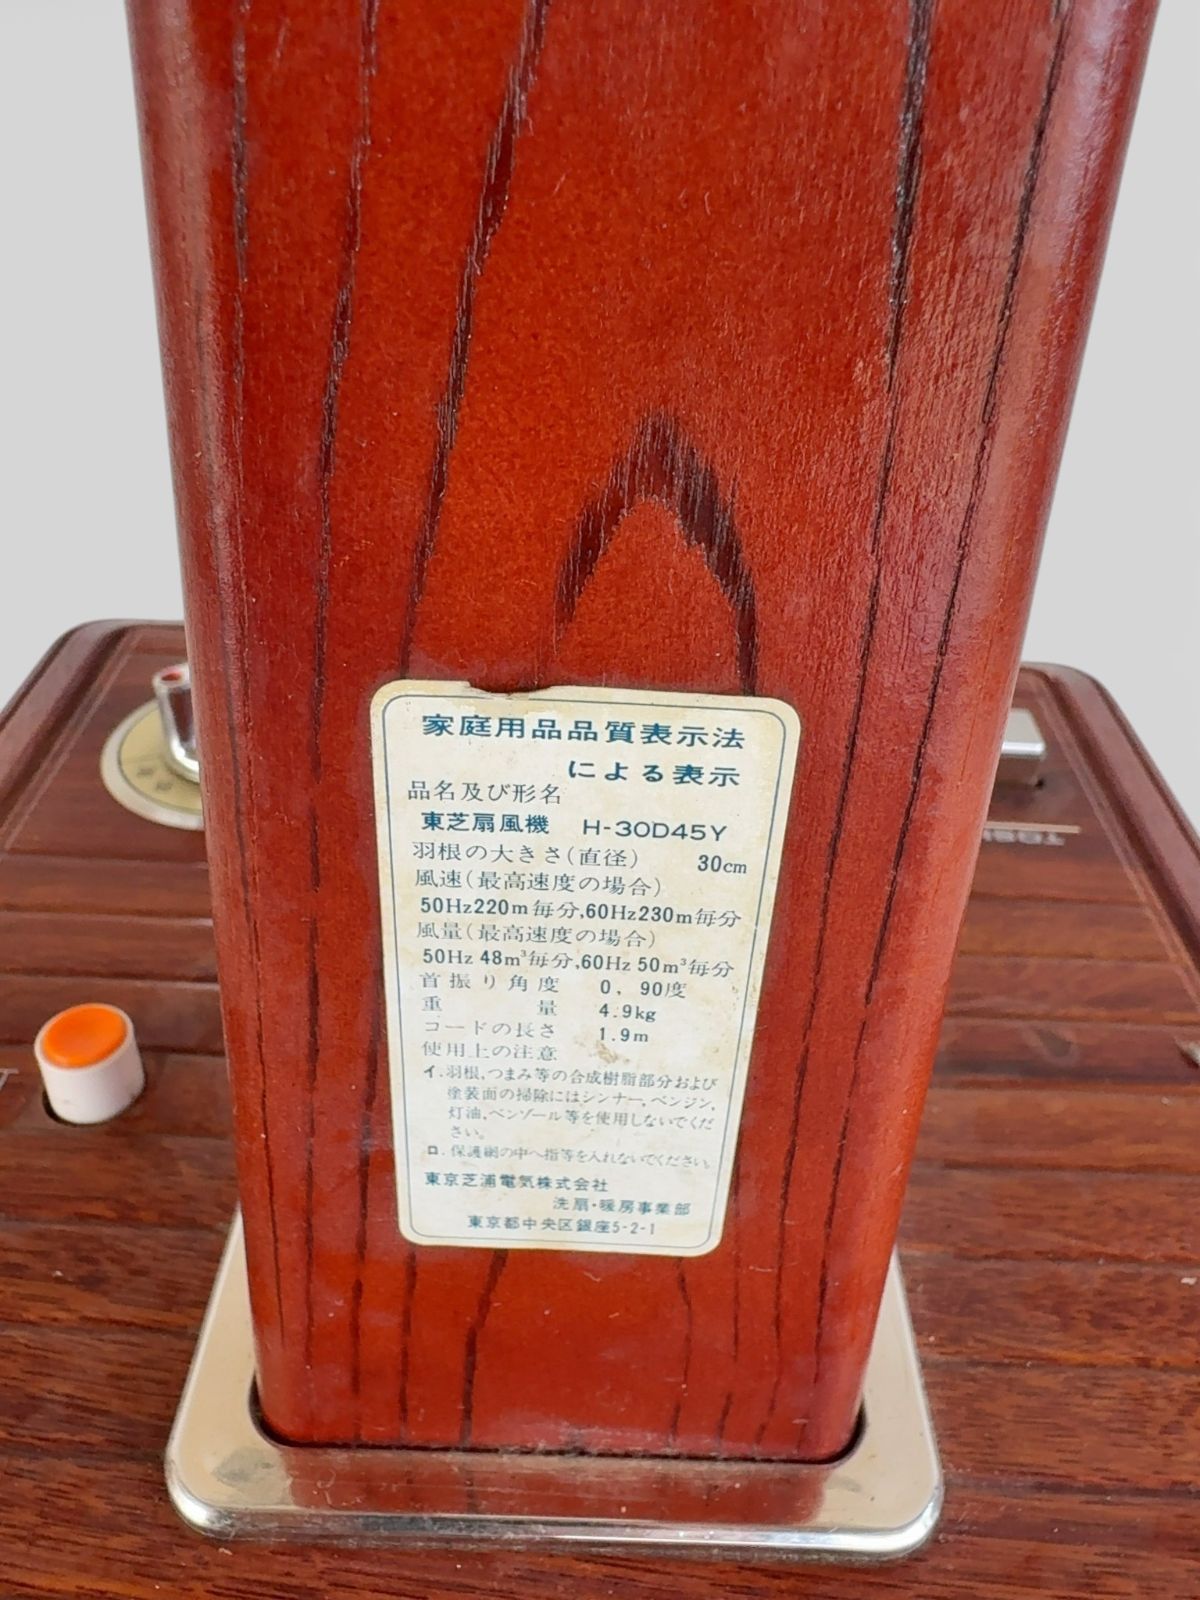 家庭用品品質表示法
による表示
品名及び形名
東芝扇風機 H-30D45Y
羽根の大きさ(直径) 30cm
風速(最高速度の場合)
50Hz220m毎分,60Hz230m毎分
風量(最高速度の場合)
50Hz 48m³毎分,60Hz 50m³毎分
首振り角度 0, 90度
重量 4.9kg
コードの長さ 1.9m
使用上の注意
イ.羽根,つまみ等の合成樹脂部分および
塗装面の掃除にはシンナー,ベンジン,
灯油,ベンゾール等を使用しないでくだ
さい。
ロ.保護網の中へ指等を入れないでください。
東京芝浦電気株式会社
洗扇・暖房事業部
東京都中央区銀座5-2-1